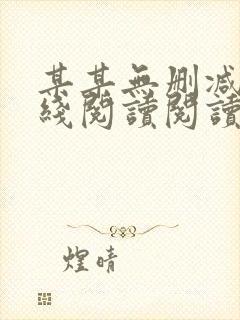 某某無刪減
綫閱讀閱讀
煌晴